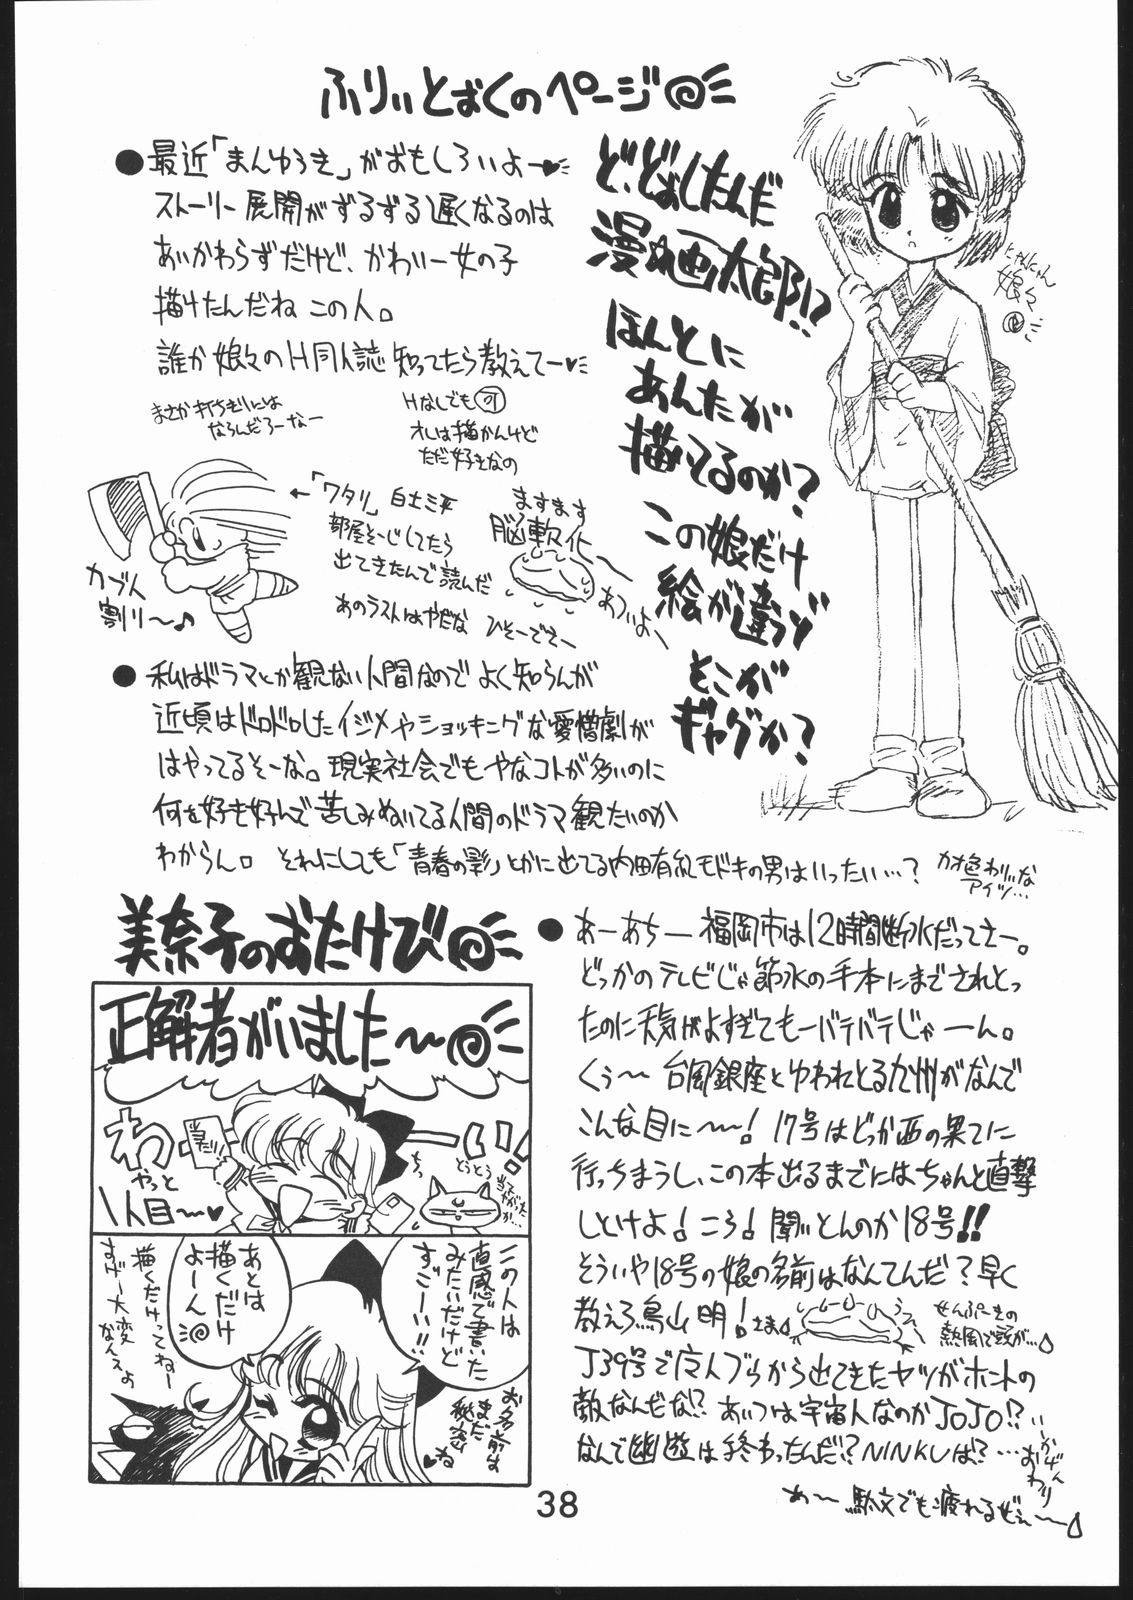 ふりぃとぉくのページ
●最近「まんゆうき」がおもしろいよー♥
ストーリー展開がずるずる遅くなるのは
あいかわらずだけど、かわいー女の子
描けたんだね この人。
誰か娘々のH同人誌知ってたら教えてー♥
まさか打ちぎりには
ならんだろーなー
Hなしでも可
オレは描かんけど
ただ好きなの
ど、どぉしたんだ
漫☆画太郎!?
ほんとに
あんたが
描いてるのか?
この娘だけ
絵が違うぞ
そこが
ギャグか?
にゃんにゃん
娘々
←「ワタリ」白土三平
部屋そーじしてたら
出てきたんで読んだ
あのラストはやだな ひそーでさー
カブト
割り〜♪
ますます
脳軟化
あついよー
●私はドラマとか観ない人間なので よく知らんが
近頃はドロドロしたイジメやショッキングな愛憎劇が
はやってるそーな。現実社会でもやなコトが多いのに
何を好き好んで苦しみぬいてる人間のドラマ観たいのか
わからん。それにしても「青春の影」とかに出てる内田有紀モドキの男はいったい…?
カオ色わりいな
アイツ…
美奈子のおたけび
正解者がいました〜
わーい!
当たり
やっと
1人目〜♥
とうとう
当てやがったか…
この人は
直感で書いた
みたいだけど
すごーい!!
お名前は
まだ
秘密ね♥
あとは
描くだけ
よーん
描くだけってねー
すげー大変
なんスよ
●あーあちー 福岡市は12時間断水だってさー。
どっかのテレビじゃ節水の手本にまでされとっ
たのに天気がよすぎてもーバテバテじゃーん。
くぅ〜 台風銀座とゆわれとる九州がなんで
こんな目に〜! 17号はどっか西の果てに
行っちまうし、この本出るまでにはちゃんと直撃
しとけよ! ころ! 聞いとんのか18号!!
そういや18号の娘の名前はなんてんだ?早く
教えろ鳥山明!さま
せんぷーきの
熱風で頭が…
J39号で広人ブッちから出てきたヤツがホントの
敵なんだな!? あいつは宇宙人なのかJOJO!?
なんで幽遊は終わったんだ!? NINKUは?…
いかげん
おわり
あ〜 駄文でも疲れるぜぇ〜
38